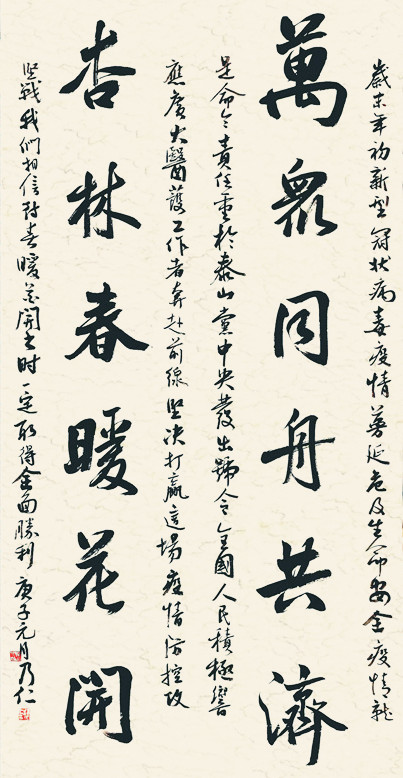 歲末年初新型冠状病毒疫情蔓延危及生命安全疫情就
萬眾同舟共濟
是命令責任重於泰山黨中央發出號令全國人民積極響
應廣大醫護工作者奔赴前線堅决打贏這場疫情防控攻
杏林春暖花開
堅戰我們相信待春暖花開之时一定取得全面勝利 庚子元月乃仁